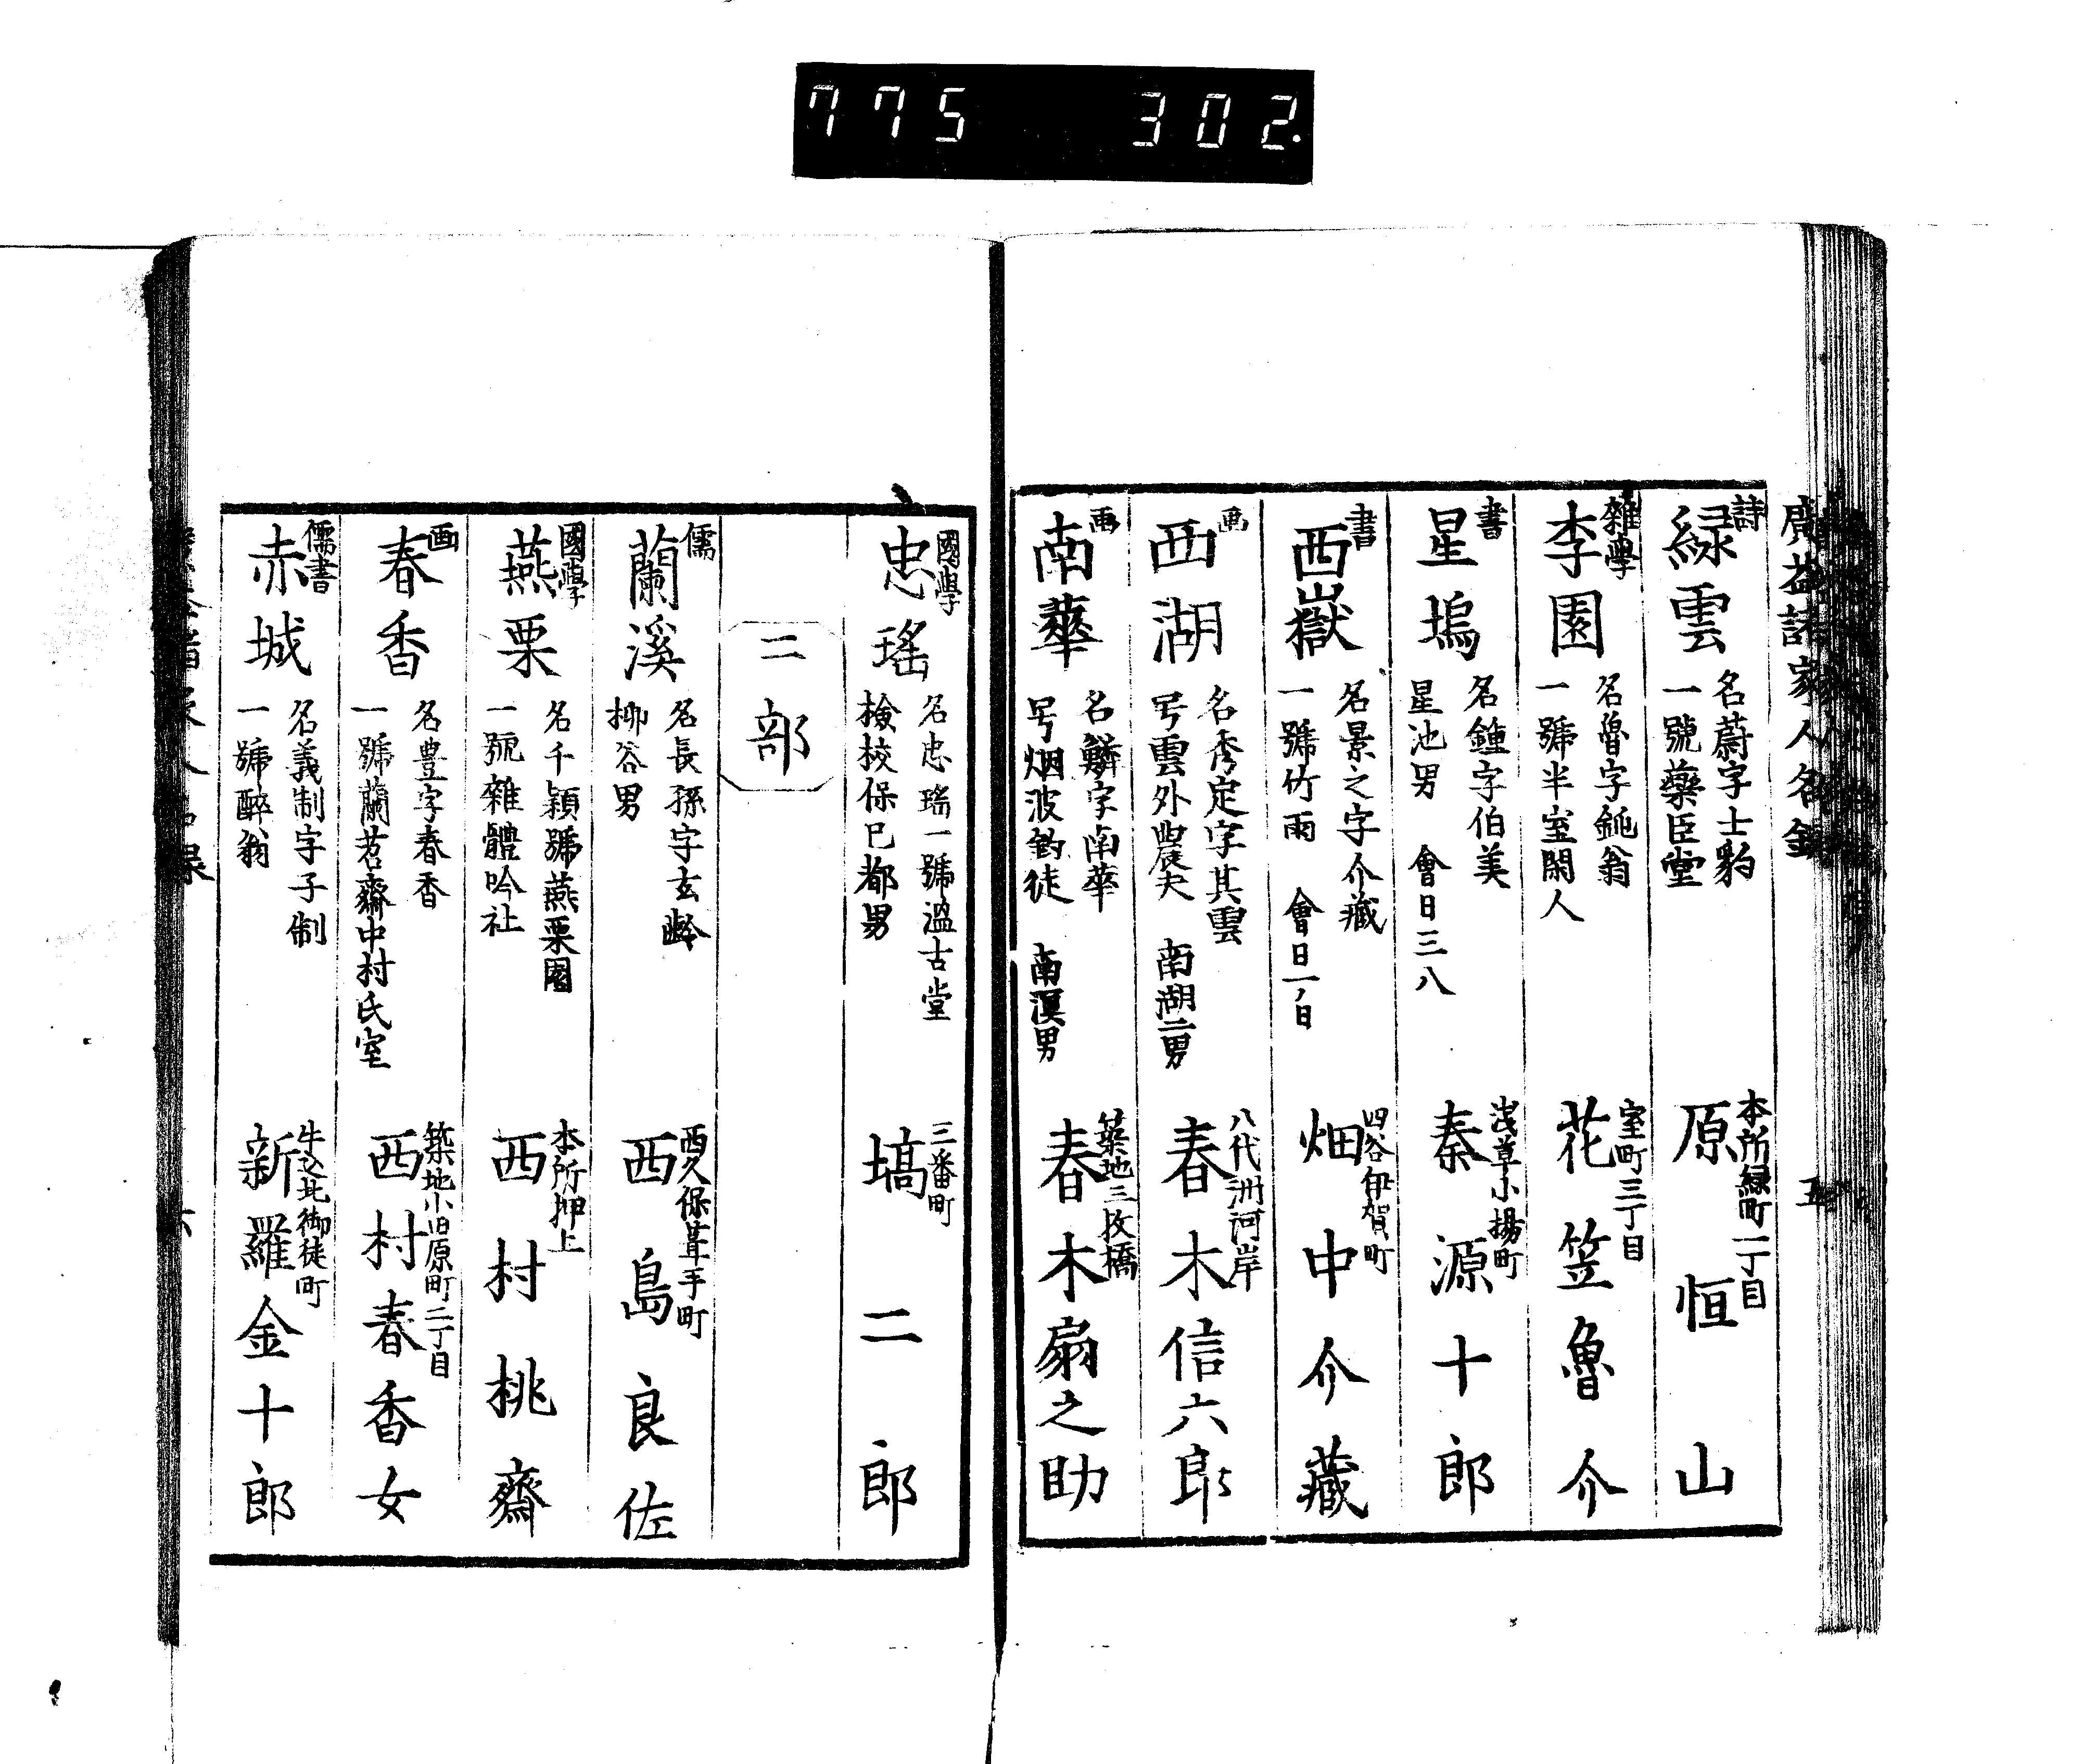 775 302.
廣益諸家人名録
五
詩
緑雲
名蔚字士豹
一號藥臣堂
本所緑町一丁目
原恒山
雜學
李園
名魯字鈍翁
一號半室閑人
室町三丁目
花笠魯介
書
星塢
名鍾字伯美
星池男 會日三八
浅草小揚町
秦源十郎
書
西嶽
名景之字介藏
一號竹雨 會日一ノ日
四谷伊賀町
畑中介藏
画
西湖
名秀定字其雲
号雲外農夫 南湖二男
八代洲河岸
春木信六郎
画
南華
名鱗字南華
号烟波釣徒 南溟男
築地三枚橋
春木扇之助
國學
忠瑤
名忠瑤一號溫古堂
檢校保己都男
三番町
塙二郎
二部
儒
蘭溪
名長孫字玄齡
柳谷男
西久保葺手町
西島良佐
國學
燕栗
名千頴號燕栗園
一號雜體吟社
本所押上
西村桃齋
画
春香
名豊字春香
一號蘭若齋中村氏室
築地小田原町二丁目
西村春香女
儒書
赤城
名義制字子制
一號醉翁
牛込北御徒町
新羅金十郎
六